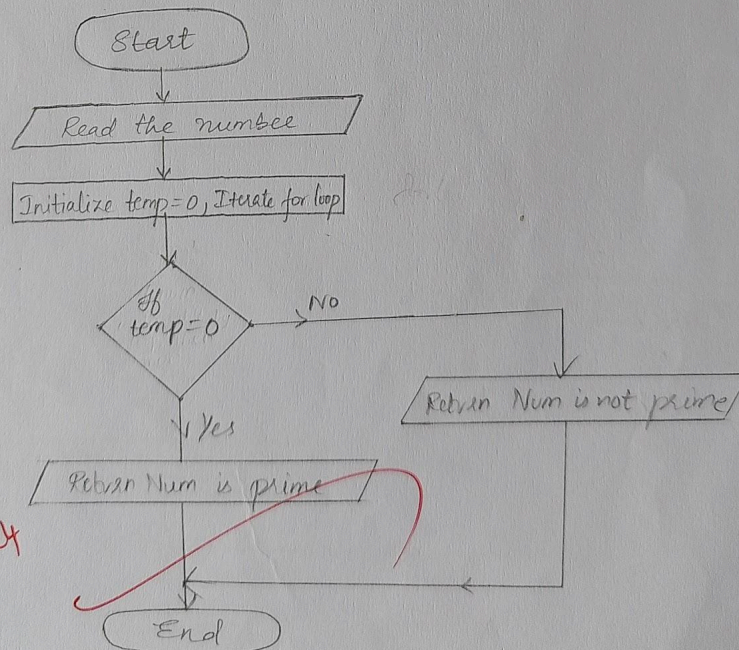 Start
Read the number
Initialize temp=0, Iterate for loop
If
temp=0
NO
Return Num is not prime
Yes
Return Num is prime
End